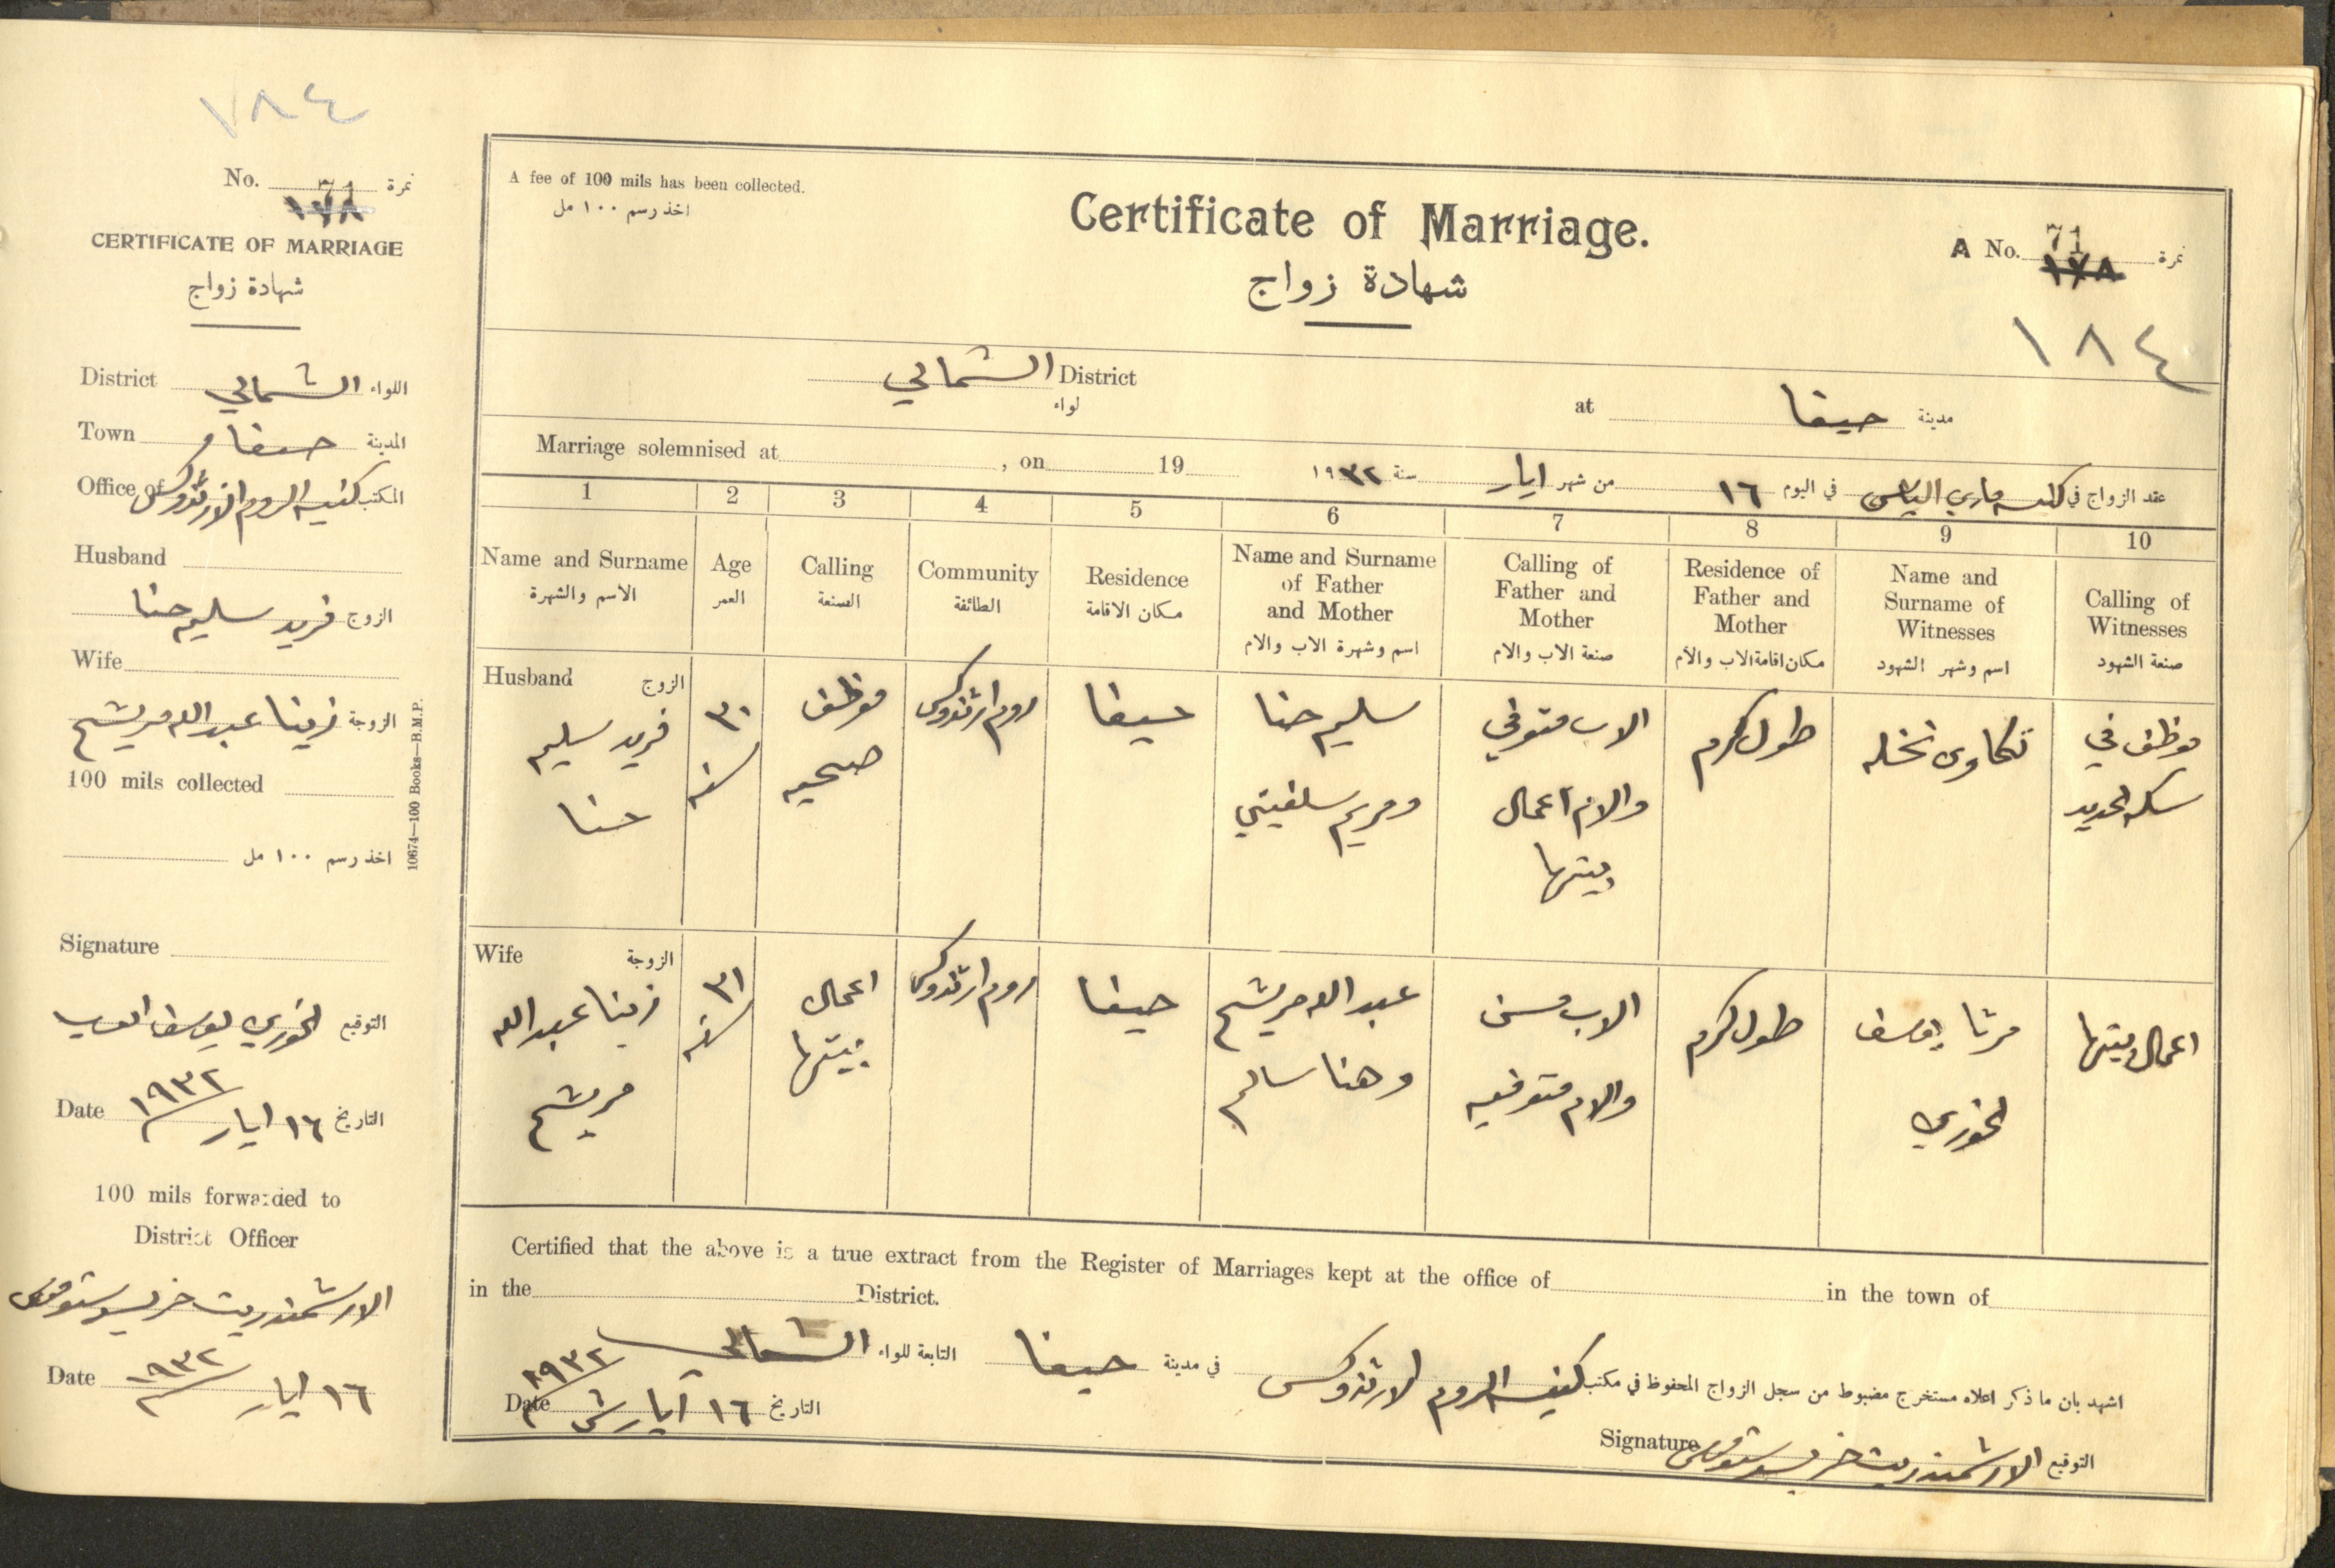 ١٨٤
No. 71 نمرة
١٧٨
CERTIFICATE OF MARRIAGE
شهادة زواج
District الشمالي اللواء
Town حيفا المدينة
Office of كنيسة الروم الارثوذكس المكتب
Husband
الزوج فريد سليم حنا
Wife
الزوجة زينا عبدالله مريشح
100 mils collected
اخذ رسم ١٠٠ مل
Signature
التوقيع الخوري يوسف
Date ١٦ ايار ١٩٣٢ التاريخ
100 mils forwarded to
District Officer
الارشمندريت خريسوستوموس
Date ١٦ ايار ١٩٣٢
10674—100 Books—B.M.P.
A fee of 100 mils has been collected.
اخذ رسم ١٠٠ مل
Certificate of Marriage.
شهادة زواج
A No. 71 نمرة
١٧٨
١٨٤
الشمالي District
لواء
at حيفا مدينة
Marriage solemnised at , on 19
عقد الزواج في كنيسة ماري الياس في اليوم ١٦ من شهر ايار سنة ١٩٣٢
1 2 3 4 5 6 7 8 9 10
Name and Surname
الاسم والشهرة
Age
العمر
Calling
الصنعة
Community
الطائفة
Residence
مكان الاقامة
Name and Surname
of Father
and Mother
اسم وشهرة الاب والام
Calling of
Father and
Mother
صنعة الاب والام
Residence of
Father and
Mother
مكان اقامة الاب والام
Name and
Surname of
Witnesses
اسم وشهر الشهود
Calling of
Witnesses
صنعة الشهود
Husband الزوج
فريد سليم
حنا
٣٠
سنه
موظف
صحيه
روم ارثوذكس
حيفا
سليم حنا
ومريم سلفيتي
الاب متوفي
والام اعمال
بيتها
طولكرم
نخله
موظف في
سكه الحديد
Wife الزوجة
زينا عبدالله
مريشح
٣١
سنه
اعمال
بيتها
روم ارثوذكس
حيفا
عبدالله مريشح
وهنا سالم
الاب مسن
والام متوفيه
طولكرم
مرتا يوسف
الخوري
اعمال بيتها
Certified that the above is a true extract from the Register of Marriages kept at the office of in the town of
in the District.
اشهد بان ما ذكر اعلاه مستخرج مضبوط من سجل الزواج المحفوظ في مكتب كنيسة الروم الارثوذكس في مدينة حيفا التابعة للواء الشمالي
Date ١٦ ايار ١٩٣٢ التاريخ
Signature الارشمندريت خريسوستوموس التوقيع